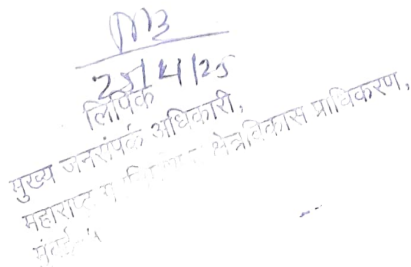 25/4/25
लिपिक
मुख्य जनसंपर्क अधिकारी,
महाराष्ट्र क्षेत्रविकास प्राधिकरण,
मुंबई